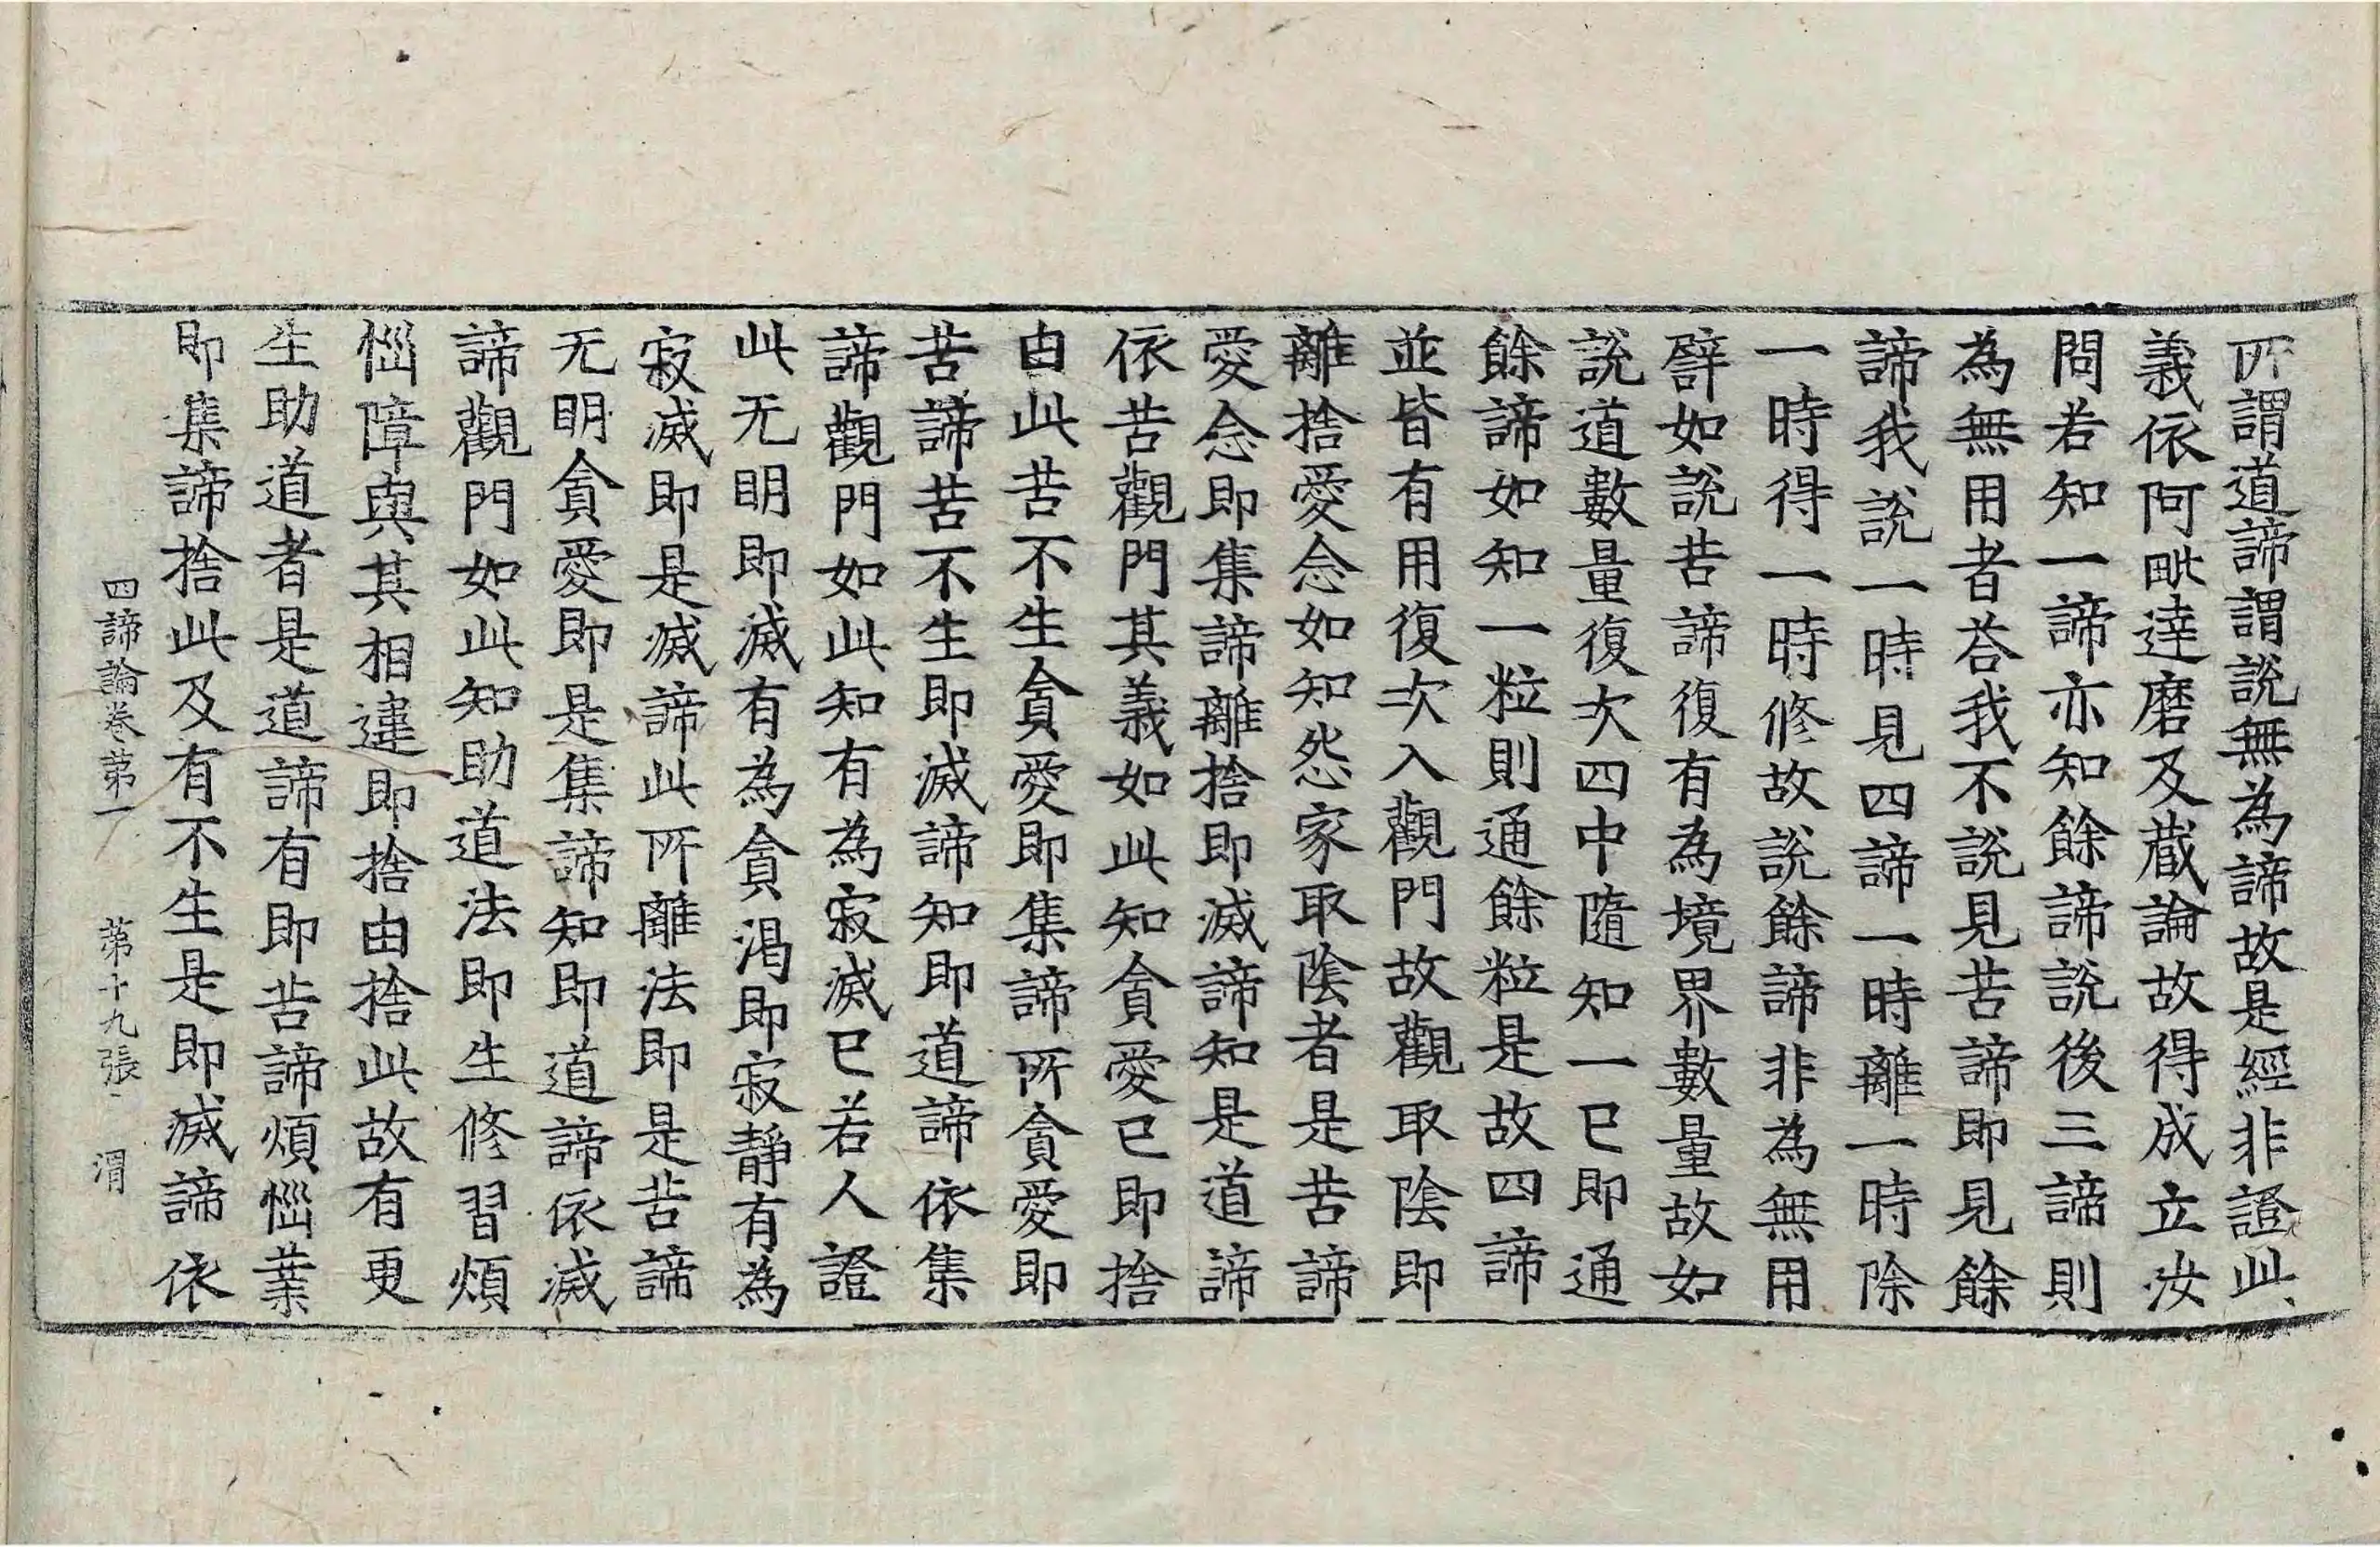 所謂道諦謂說無為諦故是經非證此
義依阿毗達磨及藏論故得成立汝
問若知一諦亦知餘諦說後三諦則
為無用者荅我不說見苦諦即見餘
諦我說一時見四諦一時離一時除
一時得一時修故說餘諦非為無用
譬如說苦諦復有為境界數量故如
說道數量復次四中隨知一已即通
餘諦如知一粒則通餘粒是故四諦
並皆有用復次入觀門故觀取陰即
離捨愛念如知怨家取陰者是苦諦
愛念即集諦離捨即滅諦知是道諦
依苦觀門其義如此知貪愛已即捨
由此苦不生貪愛即集諦所貪愛即
苦諦苦不生即滅諦知即道諦依集
諦觀門如此知有為寂滅已若人證
此无明即滅有為貪渴即寂靜有為
寂滅即是滅諦此所離法即是苦諦
无明貪愛即是集諦知即道諦依滅
諦觀門如此知助道法即生修習煩
惱障與其相違即捨由捨此故有更
生助道者是道諦有即苦諦煩惱業
即集諦捨此及有不生是即滅諦依
四諦論卷第一 第十九張 渭